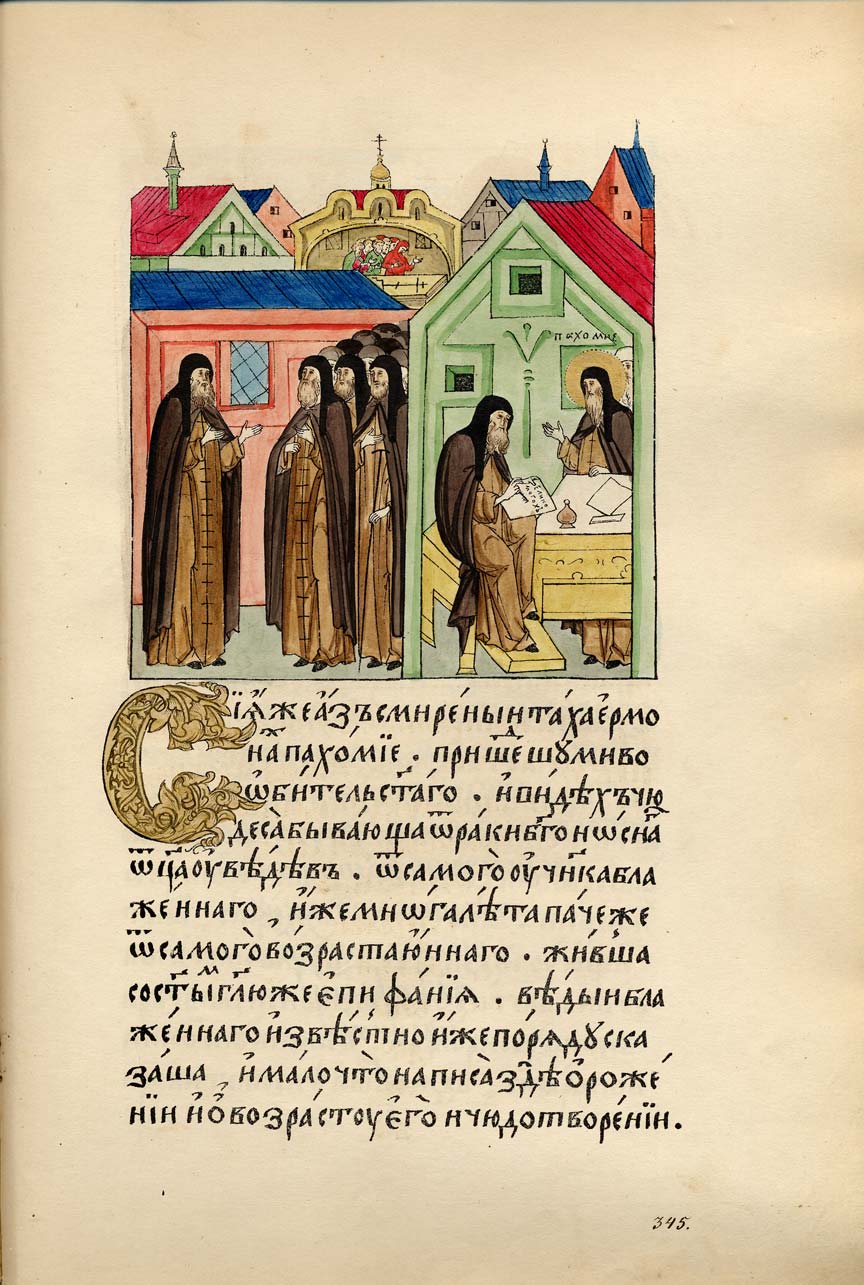 пахомие
Сїѧ́ же а҆́зъ смире́ныи таха ермо
на пахо́мїе . прише́дшꙋ ми во
ѡ҆би́тель ст҃аго . и҆ ви́дѣхъ чю
деса̀ быва́юща ѿ ра́ки бг҃оно́снаг
ѿца̀ оу҆вѣ́дѣвъ . ѿ самого̀ оу҆чн҃ка бла
же́ннаго , и҆́же мнѡ́га лѣ́та паче же
ѿ самого̀ во́зраста ю҆́ннаго . жи́вша
со ст҃ы́м гл҃ю же є҆пифа́нїѧ . вѣ́дыи бла
же́ннаго и҆звѣ́стно и҆́же по рѧ́дꙋ ска
за́ша , и҆ ма́ло что̀ написа̀ здѣ̀ о҆ роже́
нїи и҆ о҆ во́зрастоу є҆го̀ и чюдотворе́нїи .
345.